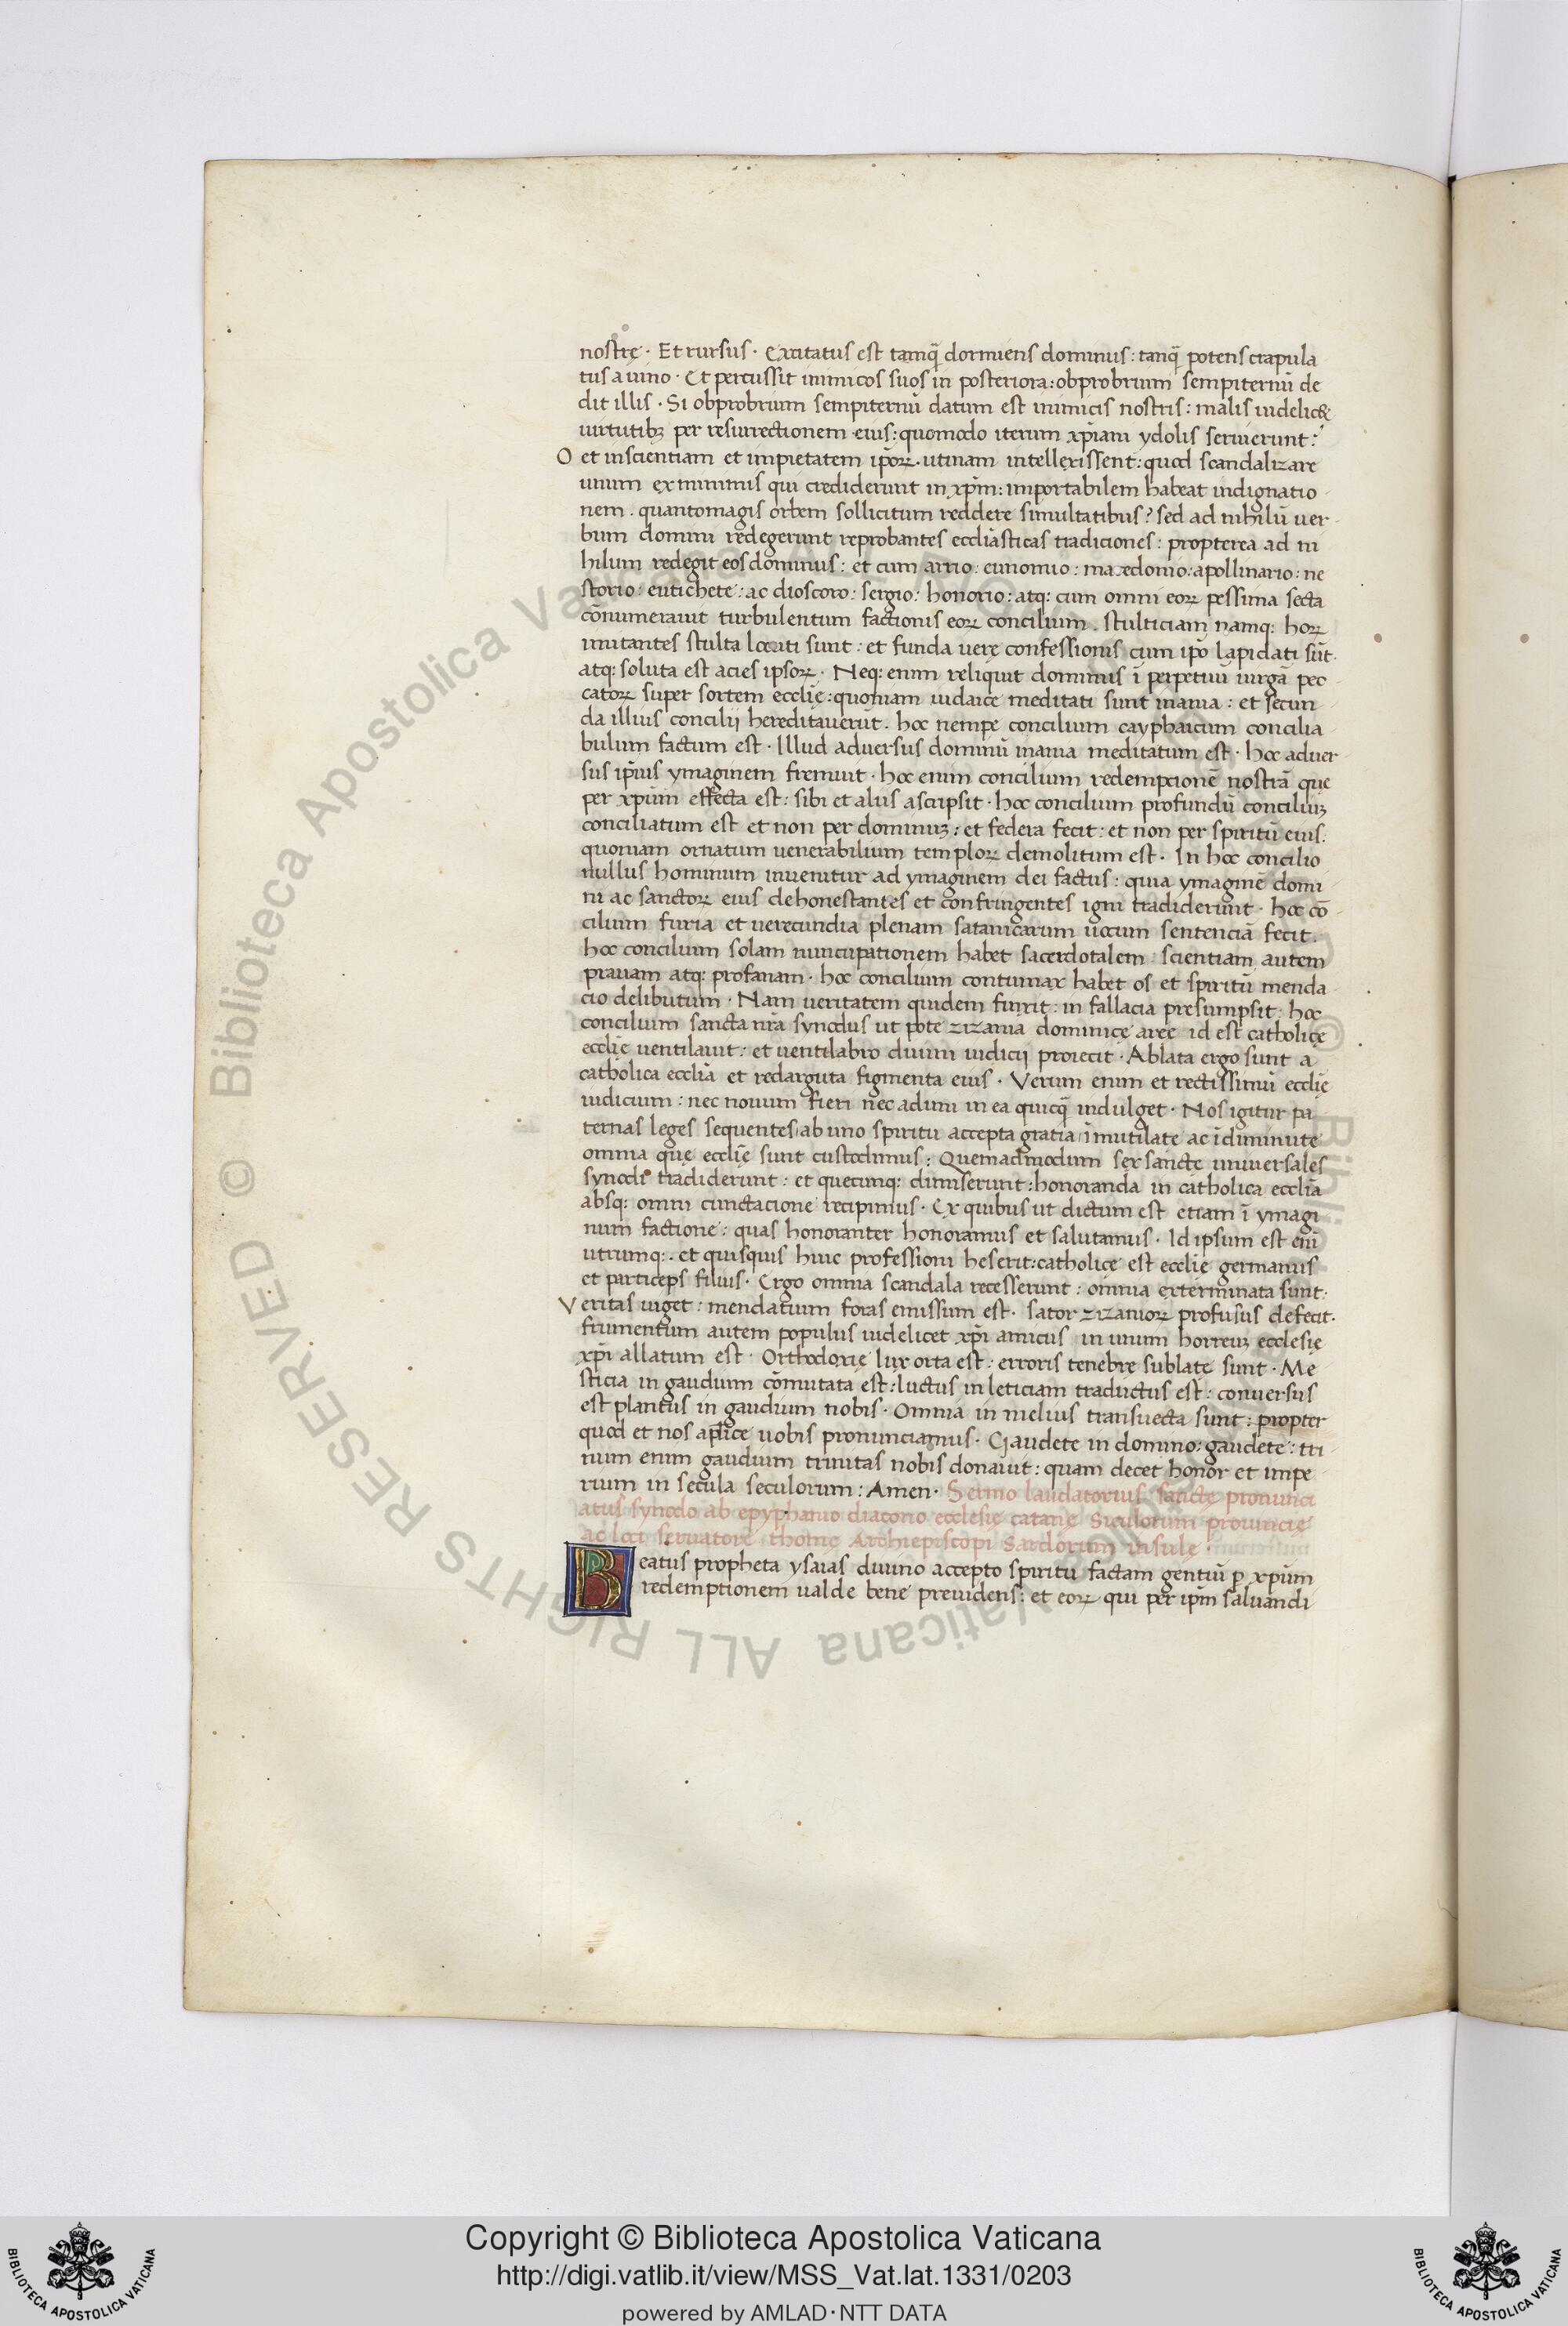 nostrę · Et rursus · Excitatus est tamq̃ dormiens dominus : tanq̃ potens crapula
tus a uino · Et percussit inimicos suos in posteriora : obprobrium sempiternũ de
dit illis · Si obprobrium sempiternũ datum est inimicis nostris : malis uidelicꝫ
uirtutibꝫ per resurrectionem eius : quomodo iterum xp̃iani ydolis seruierunt :
O et inscientiam et impietatem ip̃oꝝ · utinam intellexissent : quod scandalizare
unum ex minimis qui crediderunt in xp̃m : importabilem habeat indignatio
nem · quantomagis orbem sollicitum reddere simultatibus ? sed ad nihilũ uer
bum domini redegerunt reprobantes eccl̃iasticas tradiciones : propterea ad ni
hilum redegit eos dominus : et cum arrio : eunomio : macedonio : apollinario : ne
storio : eutichete : ac dioscoro : sergio : honorio : atq : cum omni eoꝝ pessima secta
cõnumerauit turbulentum factionis eoꝝ concilium . stulticiam namq : hoꝝ
imitantes stulta locuti sunt : et funda uerę confessionis cum ip̃o lapidati sũt ·
atq : soluta est acies ipsoꝝ · Neq : enim reliquit dominus ĩ perpetuũ uirgã pec
catoꝝ super sortem eccl̃ię : quoniam iudaice meditati sunt inania : et secun
da illius concilii hereditauerũt . hoc nempe concilium cayphaicum concilia
bulum factum est · Illud aduersus dominũ inania meditatum est · hoc aduer
sus ip̃ius ymaginem fremuit · hoc enim concilium redempcionẽ nostrã que
per xp̃um effecta est : sibi et aliis ascripsit · hoc concilium profundũ conciliuꝫ
conciliatum est et non per dominuꝫ : et federa fecit : et non per spiritũ eius .
quoniam ornatum uenerabilium temploꝝ demolitum est · In hoc concilio
nullus hominum inuenitur ad ymaginem dei factus : quia ymaginẽ domi
ni ac sanctoꝝ eius dehonestantes et confringentes igni tradiderunt · hoc cõ
cilium furia et uerecundia plenam satanicarum uocum sentenciã fecit .
hoc concilium solam nuncupationem habet sacerdotalem : scientiam autem
prauam atq : profanam · hoc concilium contumax habet os et spiritũ menda
cio delibutum · Nam ueritatem quidem finxit : in fallacia presumpsit : hoc
concilium sancta nr̃a synodus ut pote zizania dominicę aree id est catholicę
eccl̃ię uentilauit : et uentilabro diuini iudicij proiecit · Ablata ergo sunt a
catholica eccl̃ia et redarguta figmenta eius · Verum enim et rectissimũ eccl̃ię
iudicium : nec nouum fieri nec adimi in ea quicq̃ indulget · Nos igitur pa
ternas leges sequentes / ab uno spiritu accepta gratia / ĩmutilate ac ĩdiminute
omnia quę eccl̃ię sunt custodimus : Quemadmodum sex sancte uniuersales
synodi tradiderunt : et quecunq : dimiserunt : honoranda in catholica eccl̃ia
absq : omni cunctacione recipimus · Ex quibus ut dictum est etiam ĩ ymagi
num factione : quas honoranter honoramus et salutamus · Id ipsum est eñi
utrumq : · et quisquis huic professioni heserit : catholicę est eccl̃ię germanus
et particeps filius · Ergo omnia scandala recesserunt : omnia exterminata sunt :
Veritas uiget : mendatium foras emissum est · sator zizanioꝝ profusus defecit ·
frumentum autem populus uidelicet xp̃i amicus in unum horreuꝫ ecclesię
xp̃i allatum est · Orthodoxię lux orta est : erroris tenebrę sublatę sunt · Me
sticia in gaudium cõmutata est : luctus in leticiam traductus est : conuersus
est planctus in gaudium nobis · Omnia in melius transuecta sunt : propter
quod et nos apl̃ice uobis pronunciamus · Gaudete in domino : gaudete : tri
num enim gaudium trinitas nobis donauit : quam decet honor et impe
rium in secula seculorum : Amen · Sermo laudatorius sanctę pronunci
atus synodo ab epyphanio diacono ecclesię catanę Siculorum prouincię
ac loci seruatore thomę Archiepiscopi Sardorum insulę ·
Beatus propheta ysaias diuino accepto spiritu factam gentiũ ꝑ xp̃um
redemptionem ualde bene preuidens : et eoꝝ qui per ip̃m saluandi
© Biblioteca Apostolica Vaticana ALL RIGHTS RESERVED
Copyright © Biblioteca Apostolica Vaticana
http://digi.vatlib.it/view/MSS_Vat.lat.1331/0203
powered by AMLAD·NTT DATA
BIBLIOTECA APOSTOLICA VATICANA
BIBLIOTECA APOSTOLICA VATICANA